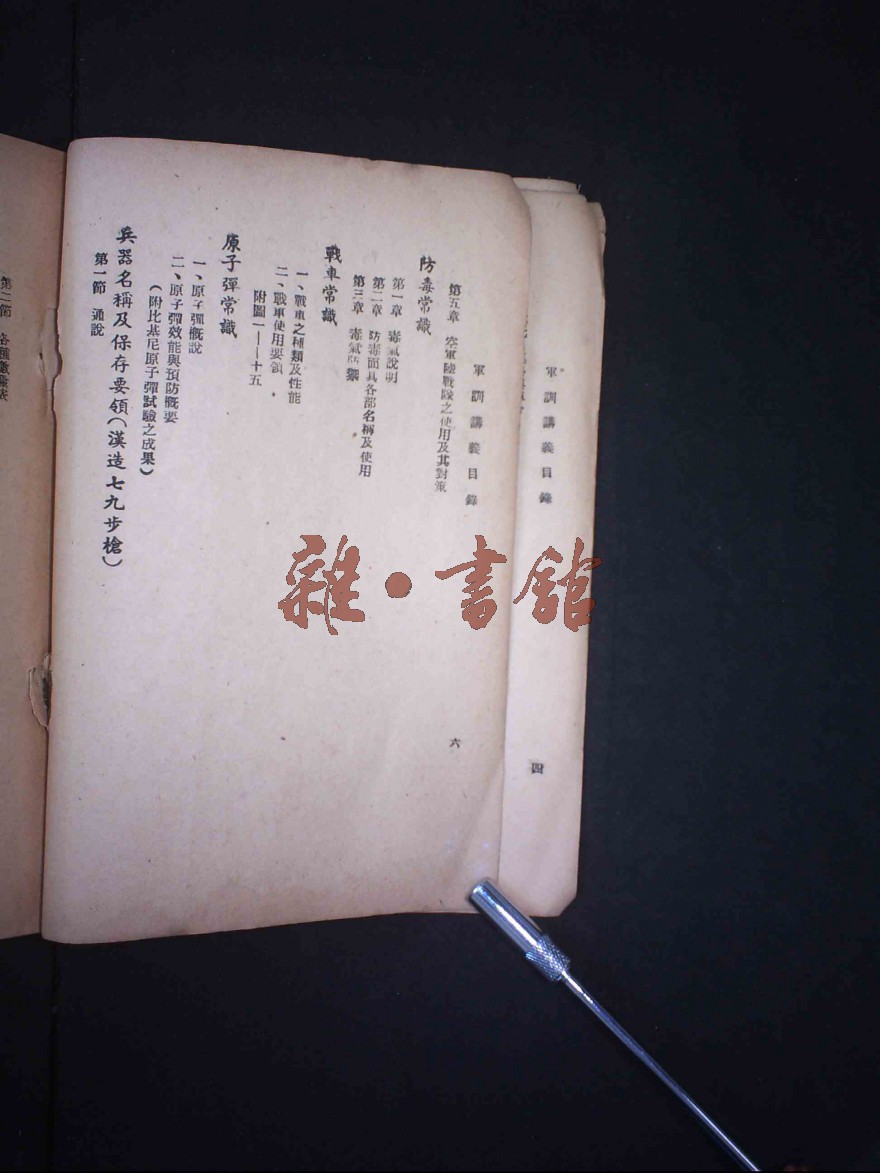 軍訓講義目錄
四
軍訓講義目錄
六
第五章 空軍陸戰隊之使用及其對策
防毒常識
第一章 毒氣說明
第二章 防毒面具各部名稱及使用
第三章 毒氣防禦
戰車常識
一、戰車之種類及性能
二、戰車使用要領
附圖一——十五
原子彈常識
一、原子彈概說
二、原子彈效能與預防概要
(附比基尼原子彈試驗之成果)
兵器名稱及保存要領(漢造七九步槍)
第一節 通說
第二節
雜·書館